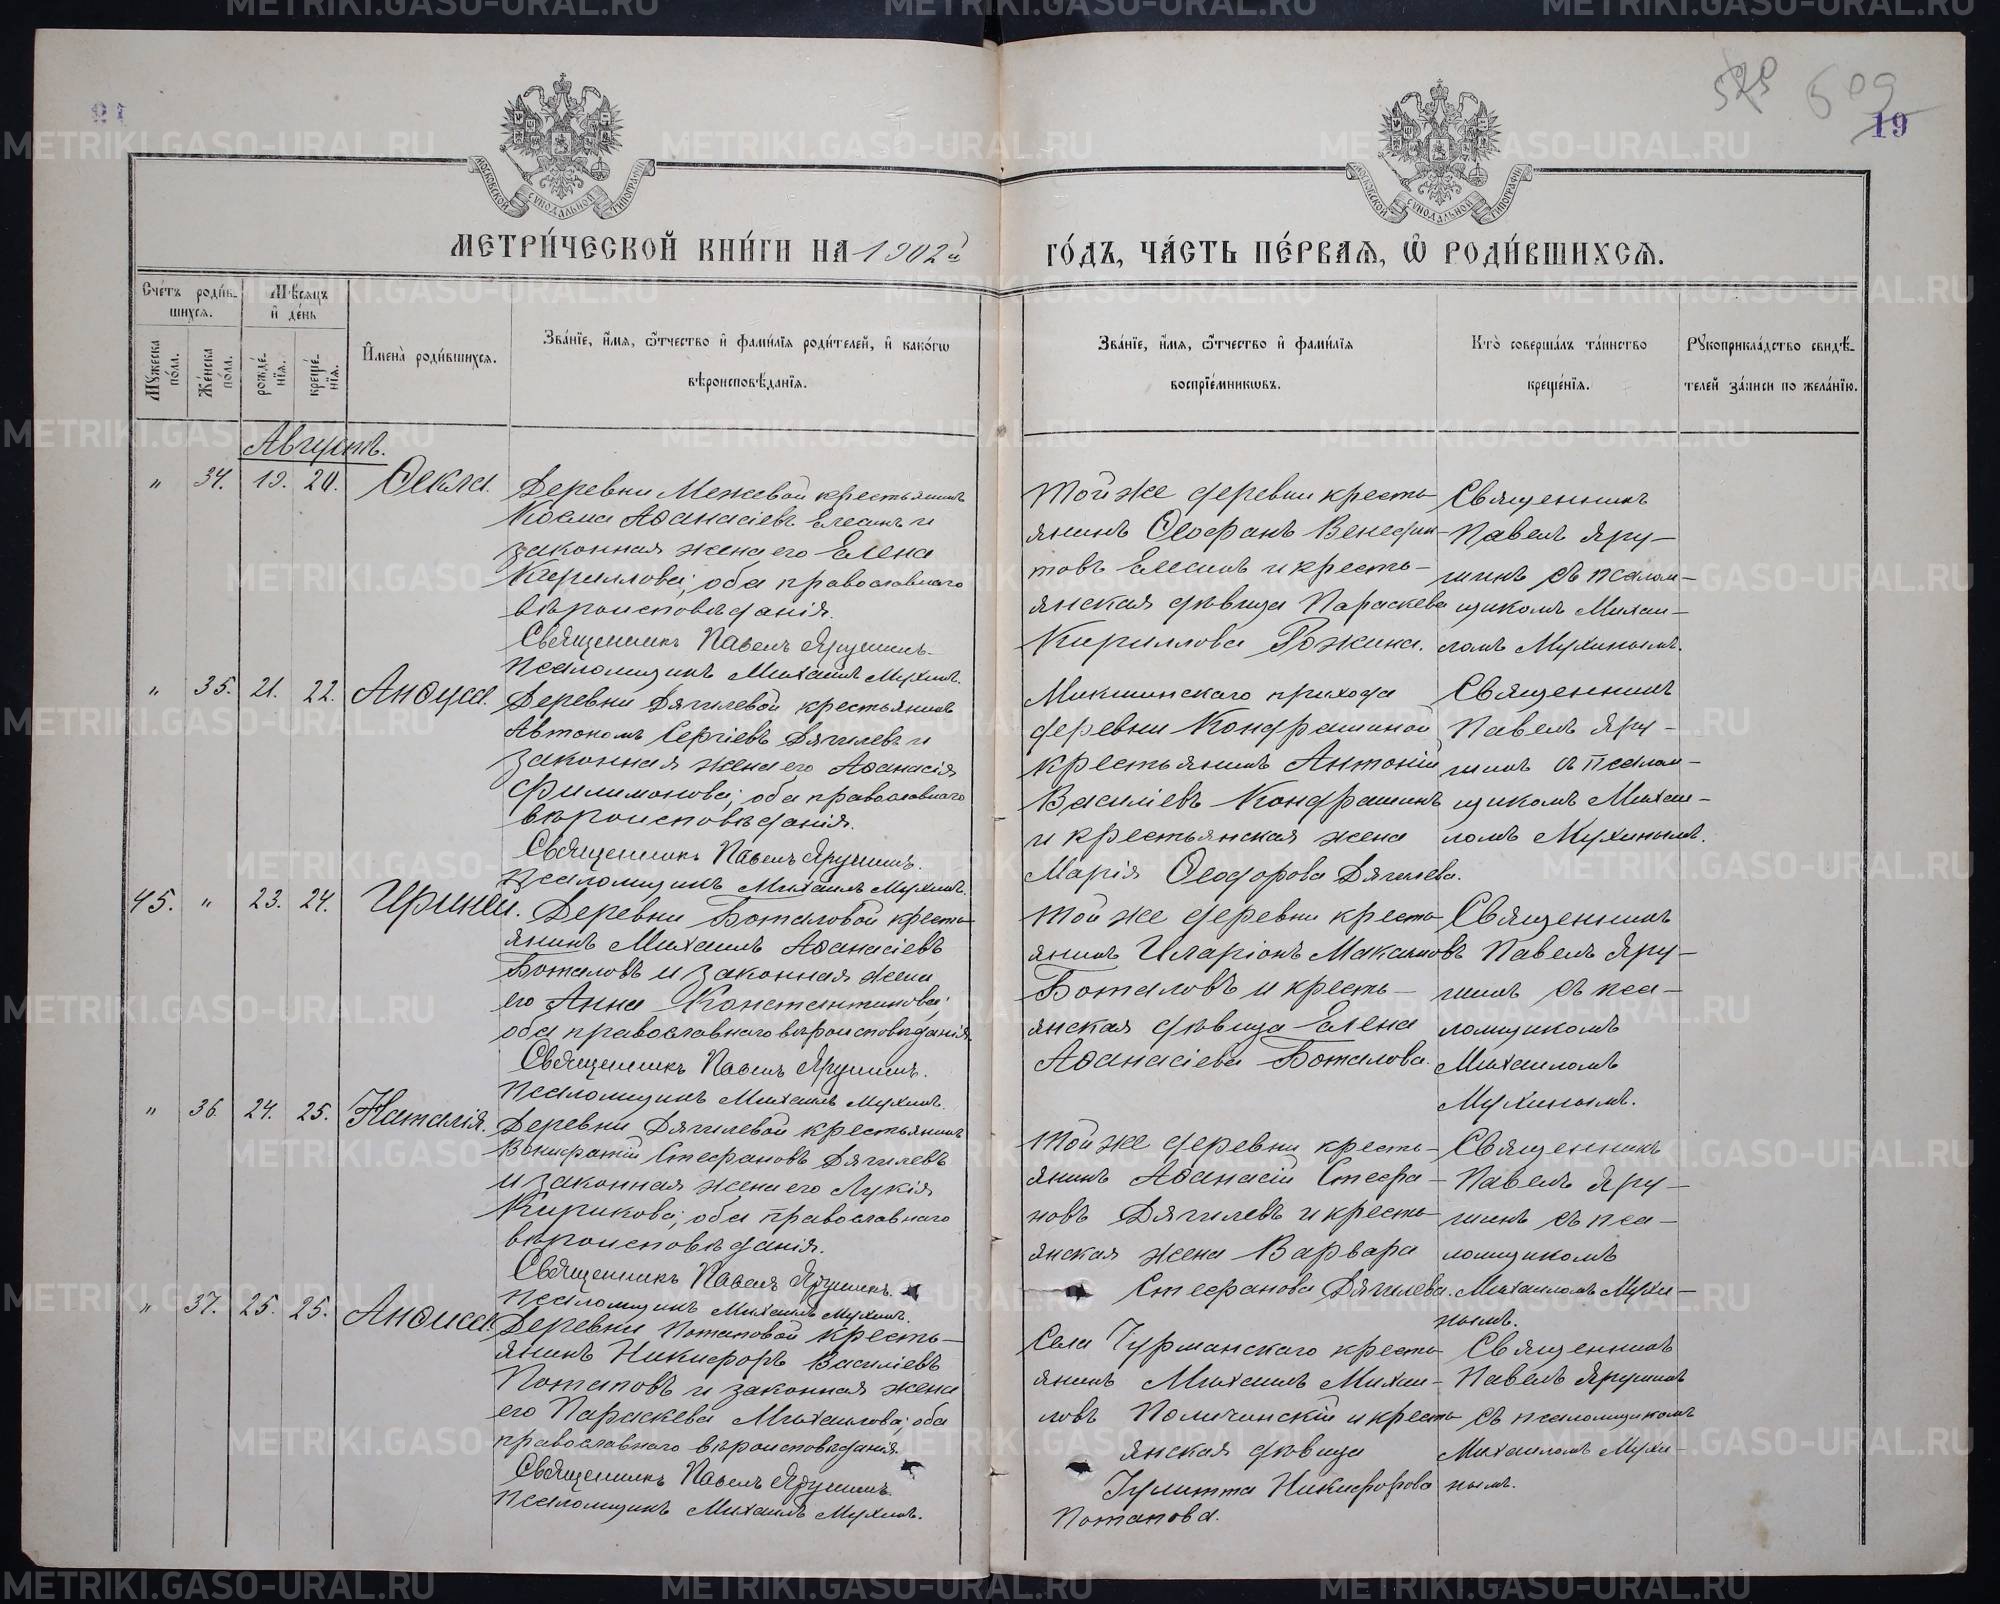 МЕТРИ́ЧЕСКОЙ КНИ́ГИ НА 1902й
ГО́ДЪ, ЧА́СТЬ ПЕ́РВАѦ, Ѿ РОДИ́ВШИХСѦ.
Сче́тъ роди́в-
шихсѧ.
Мѣ́сѧцъ
и҆ де́нь
Мꙋ́жеска по́ла.
Же́нска по́ла.
рожде́-
нїѧ.
креще́-
нїѧ.
И҆мена̀ роди́вшихсѧ.
Зва́нїе, и҆́мѧ, ѻ҆́тчество и҆ фами́лїѧ роди́телей, и҆ како́гѡ
вѣроисповѣ́данїѧ.
Зва́нїе, и҆́мѧ, ѻ҆́тчество и҆ фами́лїѧ
воспрїе́мникѡвъ.
Кто̀ соверша́лъ та́инство
креще́нїѧ.
Рꙋкоприкла́дство свидѣ́-
телей за́писи по жела́нїю.
Августъ.
" 34. 19. 20. Ѳекла.
Деревни Межевой крестьянинъ
Косма Аѳанасіевъ Елесинъ и
законная жена его Елена
Кириллова; оба православнаго
вѣроисповѣданія.
Священникъ Павелъ Ярушинъ.
Псаломщикъ Михаилъ Мухинъ.
Той же деревни кресть-
янинъ Ѳеофанъ Венедик-
товъ Елесинъ и кресть-
янская дѣвица Параскева
Кириллова Рожина.
Священникъ
Павелъ Яру-
шинъ съ псалом-
щикомъ Михаи-
ломъ Мухинымъ.
" 35. 21. 22. Анѳуса.
Деревни Дягилевой крестьянинъ
Автономъ Сергіевъ Дягилевъ и
законная жена его Аѳанасія
Филимонова; оба православнаго
вѣроисповѣданія.
Священникъ Павелъ Ярушинъ.
Псаломщикъ Михаилъ Мухинъ.
Микшинскаго прихода
деревни Кондрашиной
крестьянинъ Антоній
Василіевъ Кондрашинъ
и крестьянская жена
Марія Ѳеодорова Дягилева.
Священникъ
Павелъ Яру-
шинъ съ псалом-
щикомъ Михаи-
ломъ Мухинымъ.
45. " 23. 24. Ириней.
Деревни Боталовой кресть-
янинъ Михаилъ Аѳанасіевъ
Боталовъ и законная жена
его Анна Константинова;
оба православнаго вѣроисповѣданія.
Священникъ Павелъ Ярушинъ.
Псаломщикъ Михаилъ Мухинъ.
Той же деревни кресть-
янинъ Иларіонъ Максимовъ
Боталовъ и кресть-
янская дѣвица Елена
Аѳанасіева Боталова.
Священникъ
Павелъ Яру-
шинъ съ пса-
ломщикомъ
Михаиломъ
Мухинымъ.
" 36. 24. 25. Наталія.
Деревни Дягилевой крестьянинъ
Вонифатій Стефановъ Дягилевъ
и законная жена его Лукія
Кирикова; оба православнаго
вѣроисповѣданія.
Священникъ Павелъ Ярушинъ.
Псаломщикъ Михаилъ Мухинъ.
Той же деревни кресть-
янинъ Аѳанасій Стефа-
новъ Дягилевъ и кресть-
янская жена Варвара
Стефанова Дягилева.
Священникъ
Павелъ Яру-
шинъ съ пса-
ломщикомъ
Михаиломъ Мухи-
нымъ.
" 37. 25. 25. Анѳиса.
Деревни Потаповой кресть-
янинъ Никифоръ Василіевъ
Потаповъ и законная жена
его Параскева Михаилова; оба
православнаго вѣроисповѣданія.
Священникъ Павелъ Ярушинъ.
Псаломщикъ Михаилъ Мухинъ.
Села Гурманскаго кресть-
янинъ Михаилъ Михаи-
ловъ Поличинскій и кресть-
янская дѣвица
Іулитта Никифорова
Потапова.
Священникъ
Павелъ Ярушинъ
съ псаломщикомъ
Михаиломъ Мухи-
нымъ.
19
METRIKI.GASO-URAL.RU